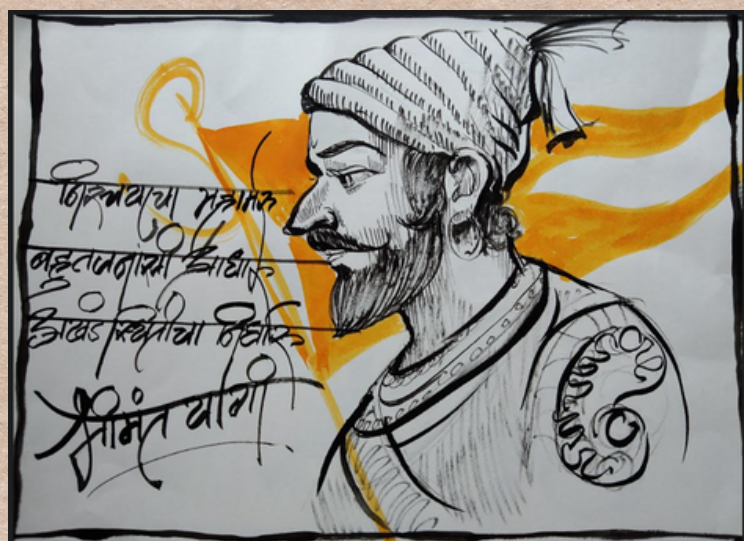 निश्चयाचा महामेरू
बहुत जनांसी आधारू
अखंड स्थितीचा निर्धारू
श्रीमंत योगी